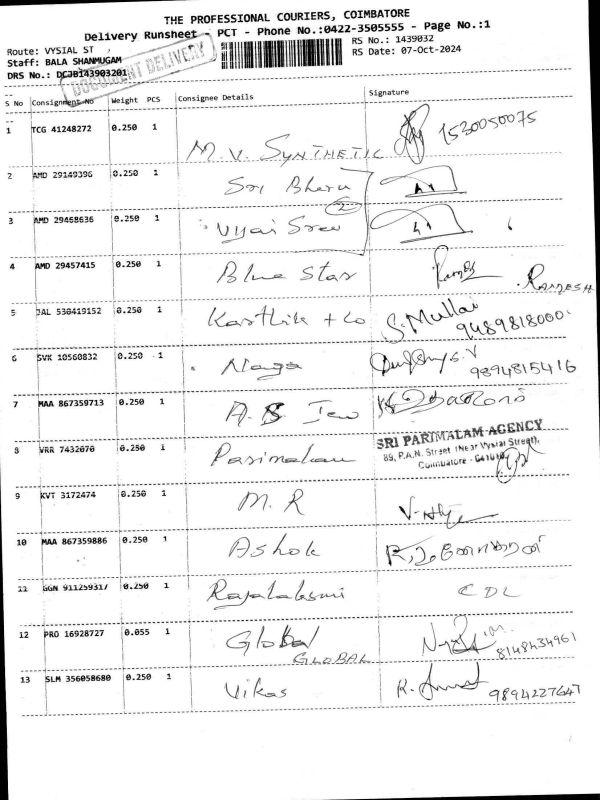 THE PROFESSIONAL COURIERS, COIMBATORE
Delivery Runsheet - PCT - Phone No.:0422-3505555 - Page No.:1
Route: VYSIAL ST
RS No.: 1439032
Staff: BALA SHANMUGAM
RS Date: 07-Oct-2024
DRS No.: DCJB143903201
DOCUMENT DELIVERY
S No Consignment No Weight PCS Consignee Details Signature
1 TCG 41248272 0.250 1 M.V. SYNTHETIC 1530050075
2 AMD 29149396 0.250 1 Sri Bhera
3 AMD 29468636 0.250 1 Vijai Sree
4 AMD 29457415 0.250 1 Blue Star Ramesh RAMESH
5 JAL 530419152 0.250 1 Karthik + Co S. Mullai 9489818000
6 SVK 10560832 0.250 1 Naga 9894815416
7 MAA 867359713 0.250 1 A.S
8 VRR 7432070 0.250 1 Parimalam SRI PARIMALAM AGENCY
89, P.A.N. Street (Near Vysial Street),
Coimbatore - 641010
9 KVT 3172474 0.250 1 M.R
10 MAA 867359886 0.250 1 Ashok
11 GGN 911259317 0.250 1 Rajalakshmi CDL
12 PRO 16928727 0.055 1 Global
GLOBAL 8148434961
13 SLM 356058680 0.250 1 Vikas 9894227647